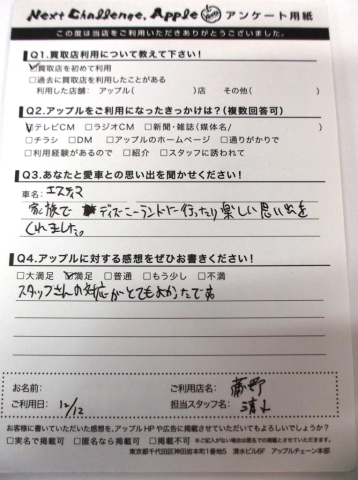 Next Challenge, Apple アンケート用紙
この度は当店をご利用いただきありがとうございました。
Q1.買取店利用について教えて下さい!
☑買取店を初めて利用
□過去に買取店を利用したことがある
利用した店舗: アップル( )店 その他( )
Q2.アップルをご利用になったきっかけは?(複数回答可)
☑テレビCM □ラジオCM □新聞・雑誌(媒体名/ )
□チラシ □DM □アップルのホームページ □通りがかりで
□利用経験があるので □紹介 □スタッフに誘われて
Q3.あなたと愛車との思い出を聞かせください!
車名: エスティマ
家族で ディズニーランドに行ったり楽しい思い出を
くれました。
Q4.アップルに対する感想をぜひお書きください!
□大満足 ☑満足 □普通 □もう少し □不満
スタッフさんの対応がとてもよかったです
お名前: ご利用店名:
ご利用日: 12/12 担当スタッフ名: 清水
お客様に書いていただいた感想を、アップルHPや広告に掲載させていただいてもよろしいでしょうか?
□実名で掲載可 □匿名なら掲載可 □掲載不可 ※ご記入がない場合は匿名での掲載とさせていただきます。
東京都千代田区神田岩本町1番地5 清水ビル6F アップルチェーン本部